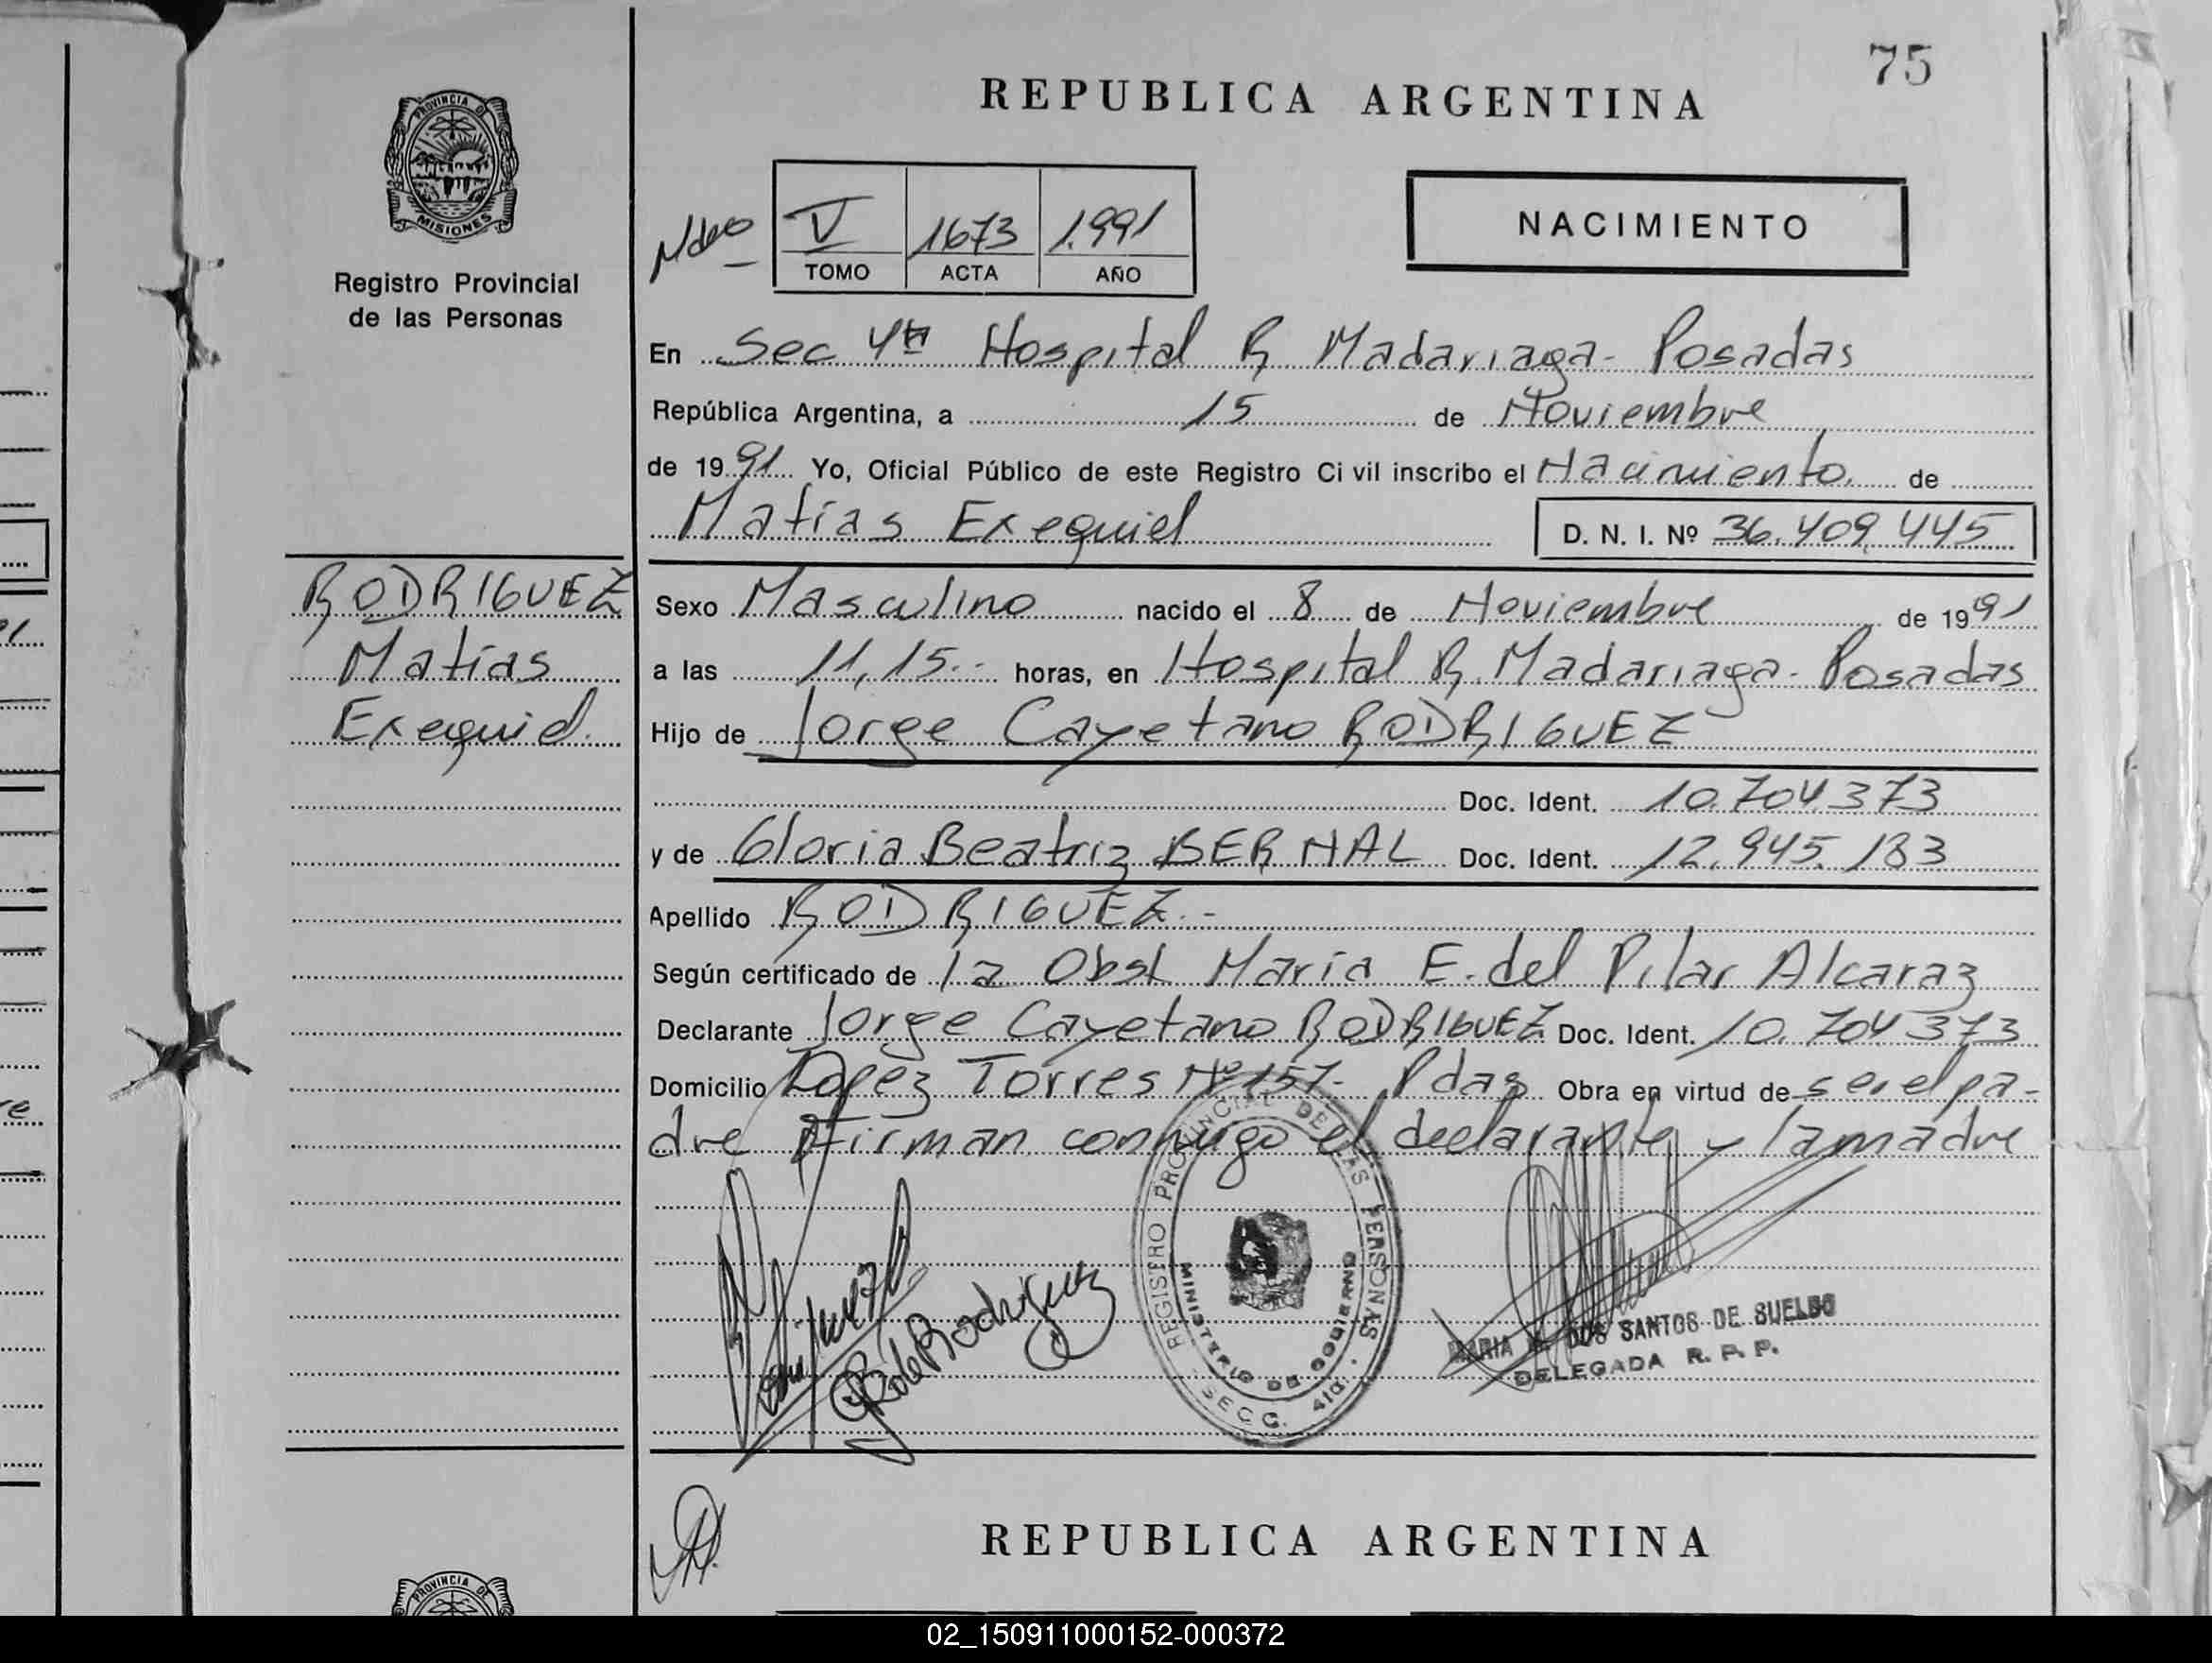 75
REPUBLICA ARGENTINA
PROVINCIA DE
MISIONES
Registro Provincial
de las Personas
V 1673 1.991
TOMO ACTA AÑO
NACIMIENTO
En Sec 4ta Hospital R Madariaga - Posadas
República Argentina, a 15 de Noviembre
de 1991 Yo, Oficial Público de este Registro Ci vil inscribo el Nacimiento. de
Matías Exequiel D. N. I. Nº 36.409.445
RODRIGUEZ
Matías
Exequiel.
Sexo Masculino nacido el 8 de Noviembre de 1991
a las 11,15.- horas, en Hospital R. Madariaga - Posadas
Hijo de Jorge Cayetano RODRIGUEZ
Doc. Ident. 10.704.373
y de Gloria Beatriz BERNAL Doc. Ident. 12.945.183
Apellido RODRIGUEZ.-
Según certificado de la Obst María E. del Pilar Alcaraz
Declarante Jorge Cayetano RODRIGUEZ Doc. Ident. 10.704.373
Domicilio Lopez Torres Nº 157- Pdas Obra en virtud de ser el pa-
dre Firman conmigo el declarante y la madre
REGISTRO PROVINCIAL DE LAS PERSONAS
MINISTERIO DE GOBIERNO
SECC. 4ta.
de Rodriguez
MARIA DOS SANTOS DE SUELDO
DELEGADA R. P. P.
REPUBLICA ARGENTINA
PROVINCIA DE
02_150911000152-000372